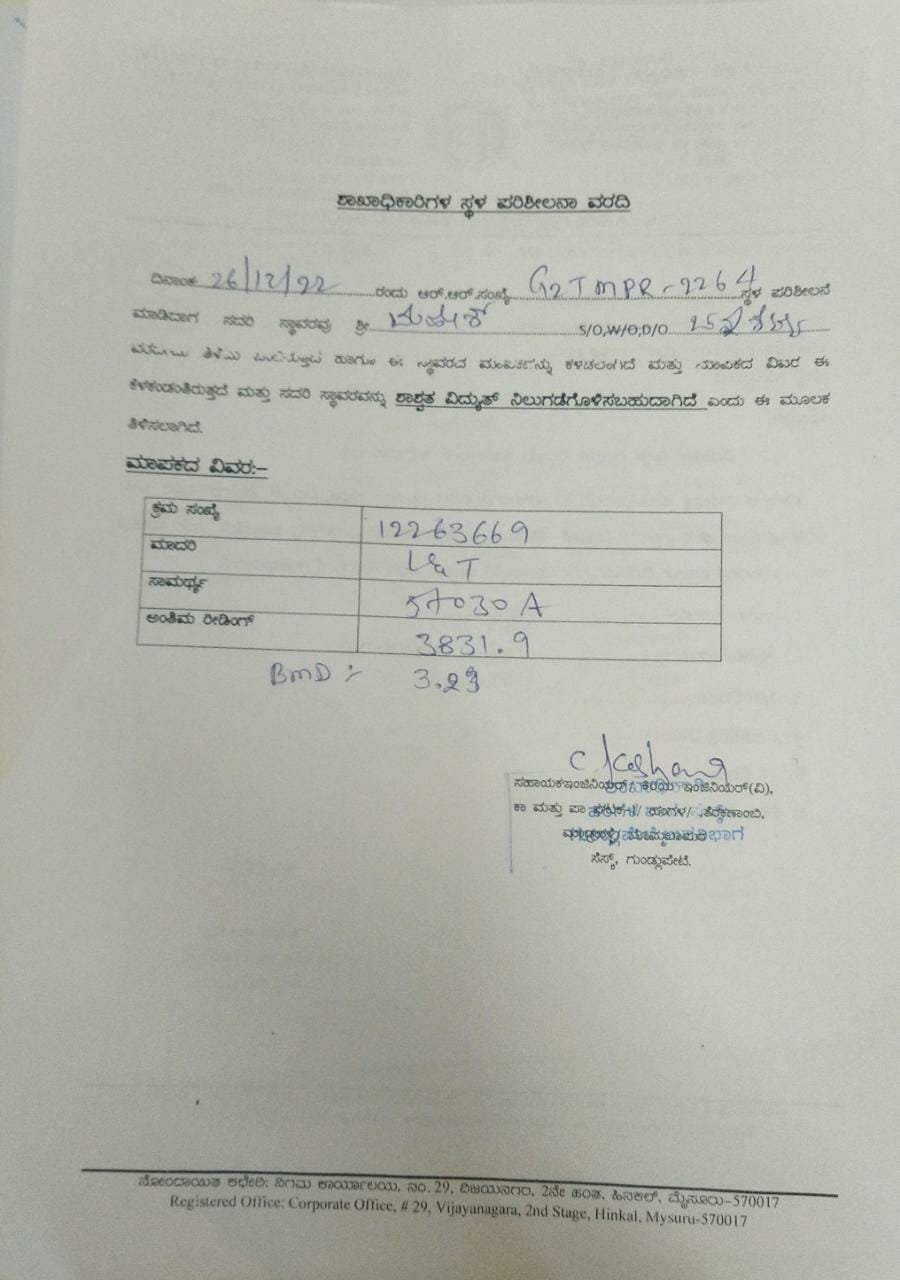 ಶಾಖಾಧಿಕಾರಿಗಳ ಸ್ಥಳ ಪರಿಶೀಲನಾ ವರದಿ
ದಿನಾಂಕ 26/12/22 ರಂದು ಆರ್.ಆರ್.ಸಂಖ್ಯೆ G2TMPR-2264 ಸ್ಥಳ ಪರಿಶೀಲನೆ
ಮಾಡಿದಾಗ ಸದರಿ ಸ್ಥಾವರವು ಶ್ರೀ ಮಹೇಶ್ S/O,W/O,D/O
ಈ ಸ್ಥಾವರದ ಮಾಪಕವನ್ನು ಕಳಚಲಾಗಿದೆ ಮತ್ತು ಮಾಪಕದ ವಿವರ ಈ
ಕೆಳಕಂಡಂತಿರುತ್ತದೆ ಮತ್ತು ಸದರಿ ಸ್ಥಾವರವನ್ನು ಶಾಶ್ವತ ವಿದ್ಯುತ್ ನಿಲುಗಡೆಗೊಳಿಸಬಹುದಾಗಿದೆ ಎಂದು ಈ ಮೂಲಕ
ತಿಳಿಸಲಾಗಿದೆ.
ಮಾಪಕದ ವಿವರ:–
ಕ್ರಮ ಸಂಖ್ಯೆ 12263669
ಮಾದರಿ L&T
ಸಾಮರ್ಥ್ಯ 5-30 A
ಅಂತಿಮ ರೀಡಿಂಗ್ 3831.9
BMD :-
ಸಹಾಯಕಇಂಜಿನಿಯರ್/ ಕಿರಿಯ ಇಂಜಿನಿಯರ್(ವಿ),
ಕಾ ಮತ್ತು ಪಾ ಹಂಗಳ/ ,ತೆರಕಣಾಂಬಿ,
ಸೆಸ್ಕ್, ಗುಂಡ್ಲುಪೇಟೆ.
ನೋಂದಾಯಿತ ಕಛೇರಿ: ನಿಗಮ ಕಾರ್ಯಾಲಯ, ನಂ. 29, ವಿಜಯನಗರ, 2ನೇ ಹಂತ, ಹಿನಕಲ್, ಮೈಸೂರು–570017
Registered Office: Corporate Office, # 29, Vijayanagara, 2nd Stage, Hinkal, Mysuru-570017